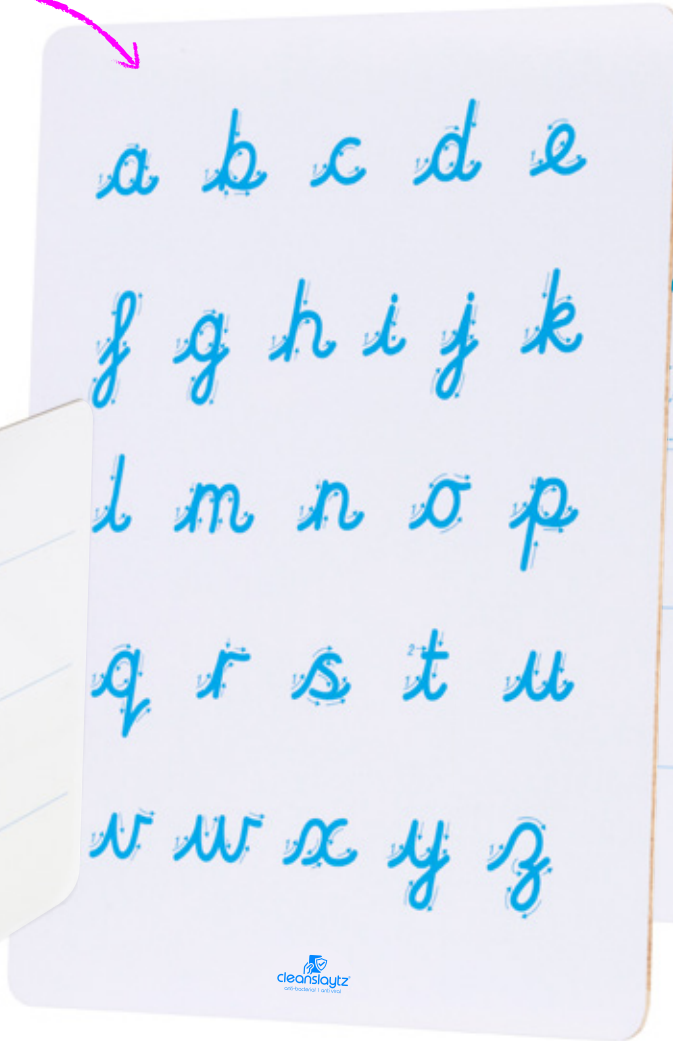 a b c d e
f g h i j k
l m n o p
q r s t u
v w x y z
cleanslaytz
anti-bacterial | anti viral